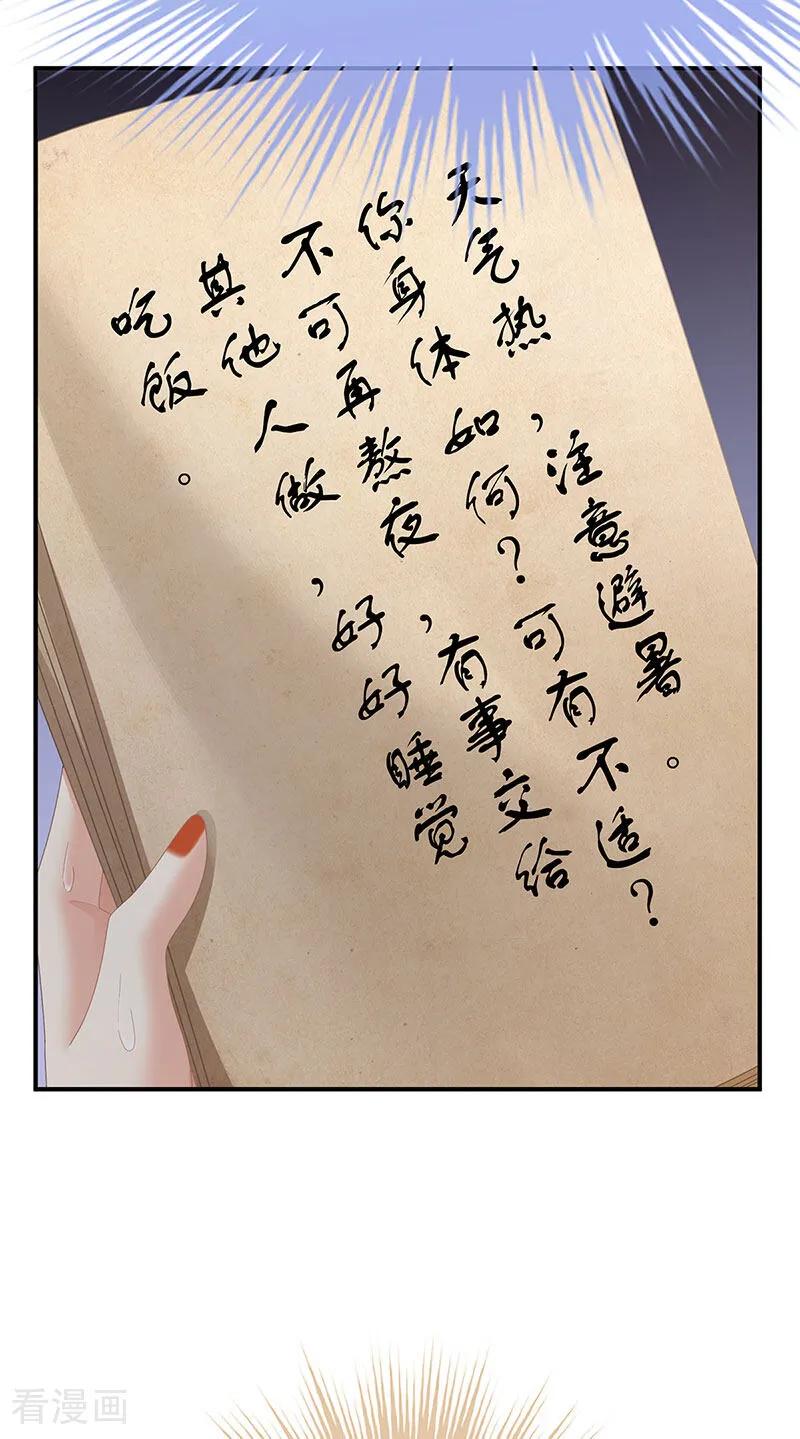 天气热，注意避暑。
你身体如何？可有不适？
不可再熬夜，有事交给
其他人做，好好睡觉
吃饭。
看漫画